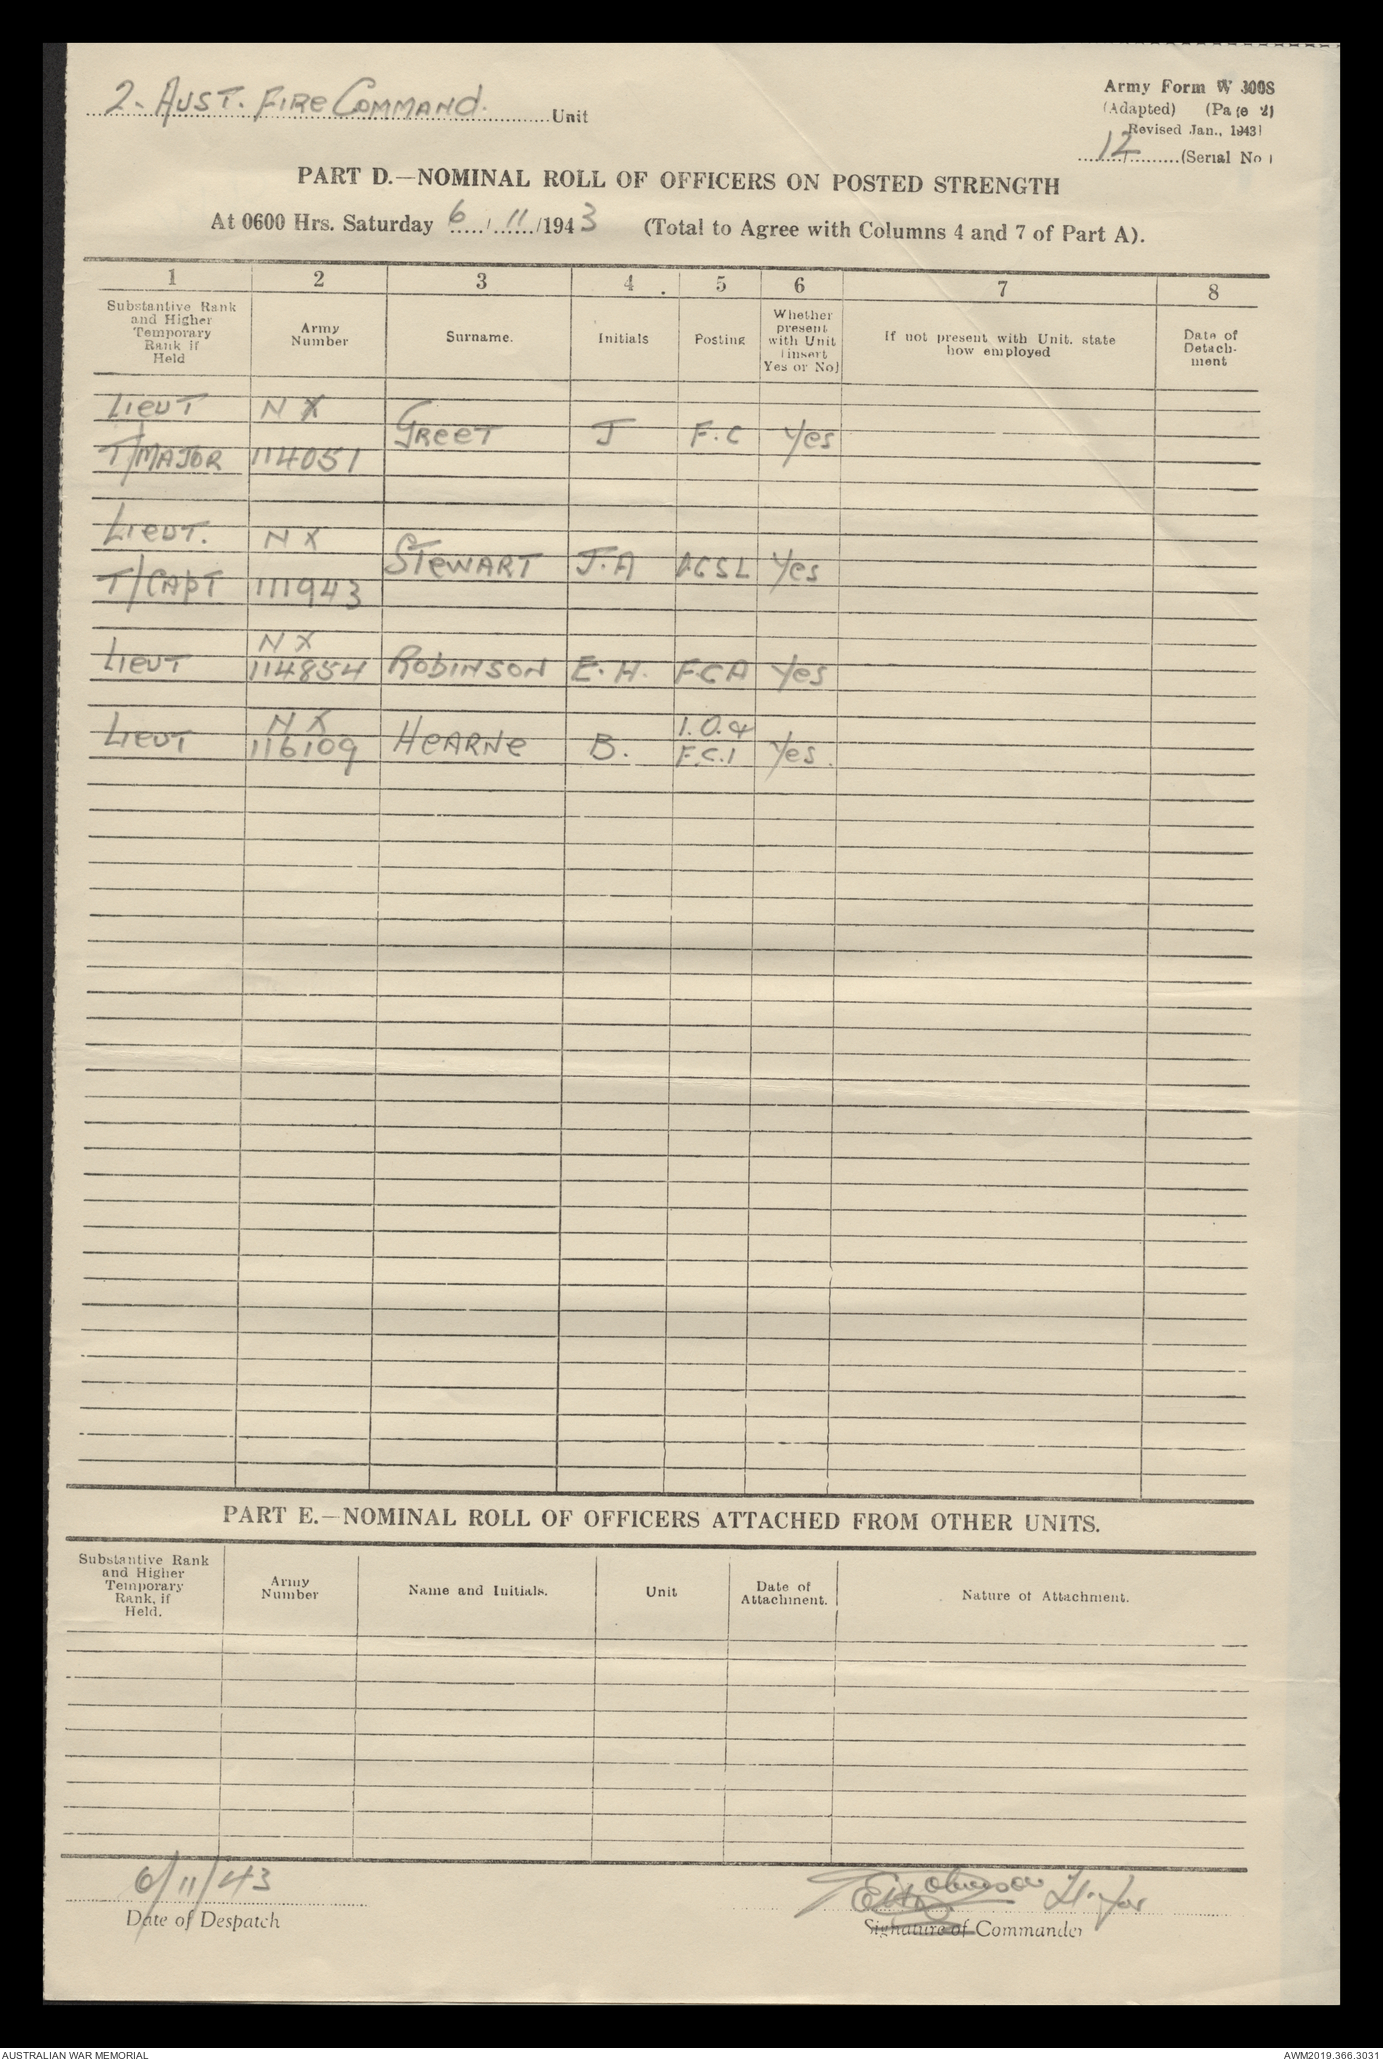 2. Aust. Fire Command. Unit
Army Form W 3008
(Adapted) (Page 2)
Revised Jan., 1943)
12 (Serial No)
PART D.—NOMINAL ROLL OF OFFICERS ON POSTED STRENGTH
At 0600 Hrs. Saturday 6 / 11 /1943 (Total to Agree with Columns 4 and 7 of Part A).
1 2 3 4 5 6 7 8
Substantive Rank and Higher Temporary Rank if Held
Army Number
Surname.
Initials
Posting
Whether present with Unit (insert Yes or No)
If not present with Unit. state how employed
Date of Detachment
Lieut NX
Greet J F.C Yes
T/Major 114051
Lieut. NX
Stewart J.A Yes
T/Capt 111943
NX
Lieut 114854 Robinson E.H. F.C.A Yes
NX I.O. &
Lieut 116109 Hearne B. F.C.1 Yes.
PART E.—NOMINAL ROLL OF OFFICERS ATTACHED FROM OTHER UNITS.
Substantive Rank and Higher Temporary Rank, if Held.
Army Number
Name and Initials.
Unit
Date of Attachment.
Nature of Attachment.
6/11/43
EH Robinson Lt. for
Date of Despatch
Signature of Commander
AUSTRALIAN WAR MEMORIAL
AWM2019.366.3031